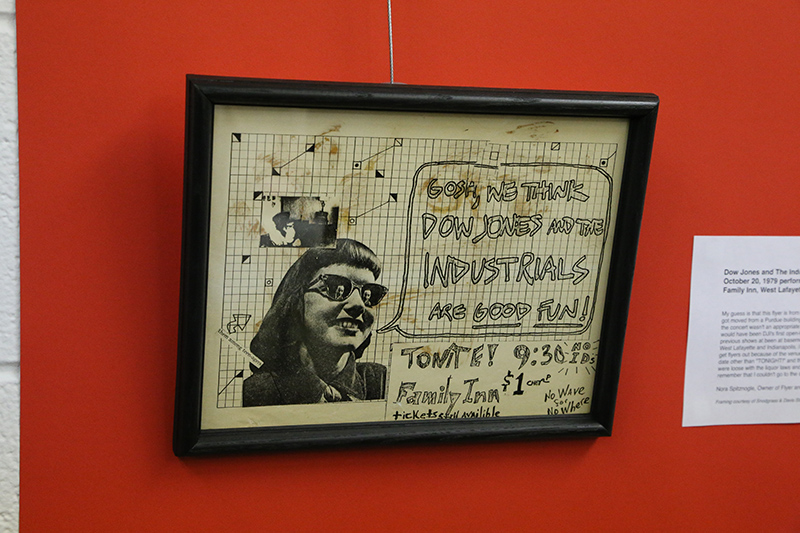 GOSH, WE THINK
DOW JONES AND THE
INDUSTRIALS
ARE GOOD FUN!
TONITE! 9:30 NO
IDS
Family Inn $1 cover
tickets still availible
No Wave
for
No Where
Dow Jones and The Ind
October 20, 1979 perfor
Family Inn, West Lafayet
My guess is that this flyer is from
got moved from a Purdue building
the concert wasn't an appropriate
would have been DJI's first open
previous shows at been at basem
West Lafayette and Indianapolis,
get flyers out because of the venue
date other than "TONIGHT!" and th
were loose with the liquor laws and
remember that I couldn't go to the
Nora Spitznogle, Owner of Flyer an
Framing courtesy of Smutgrass & Dave